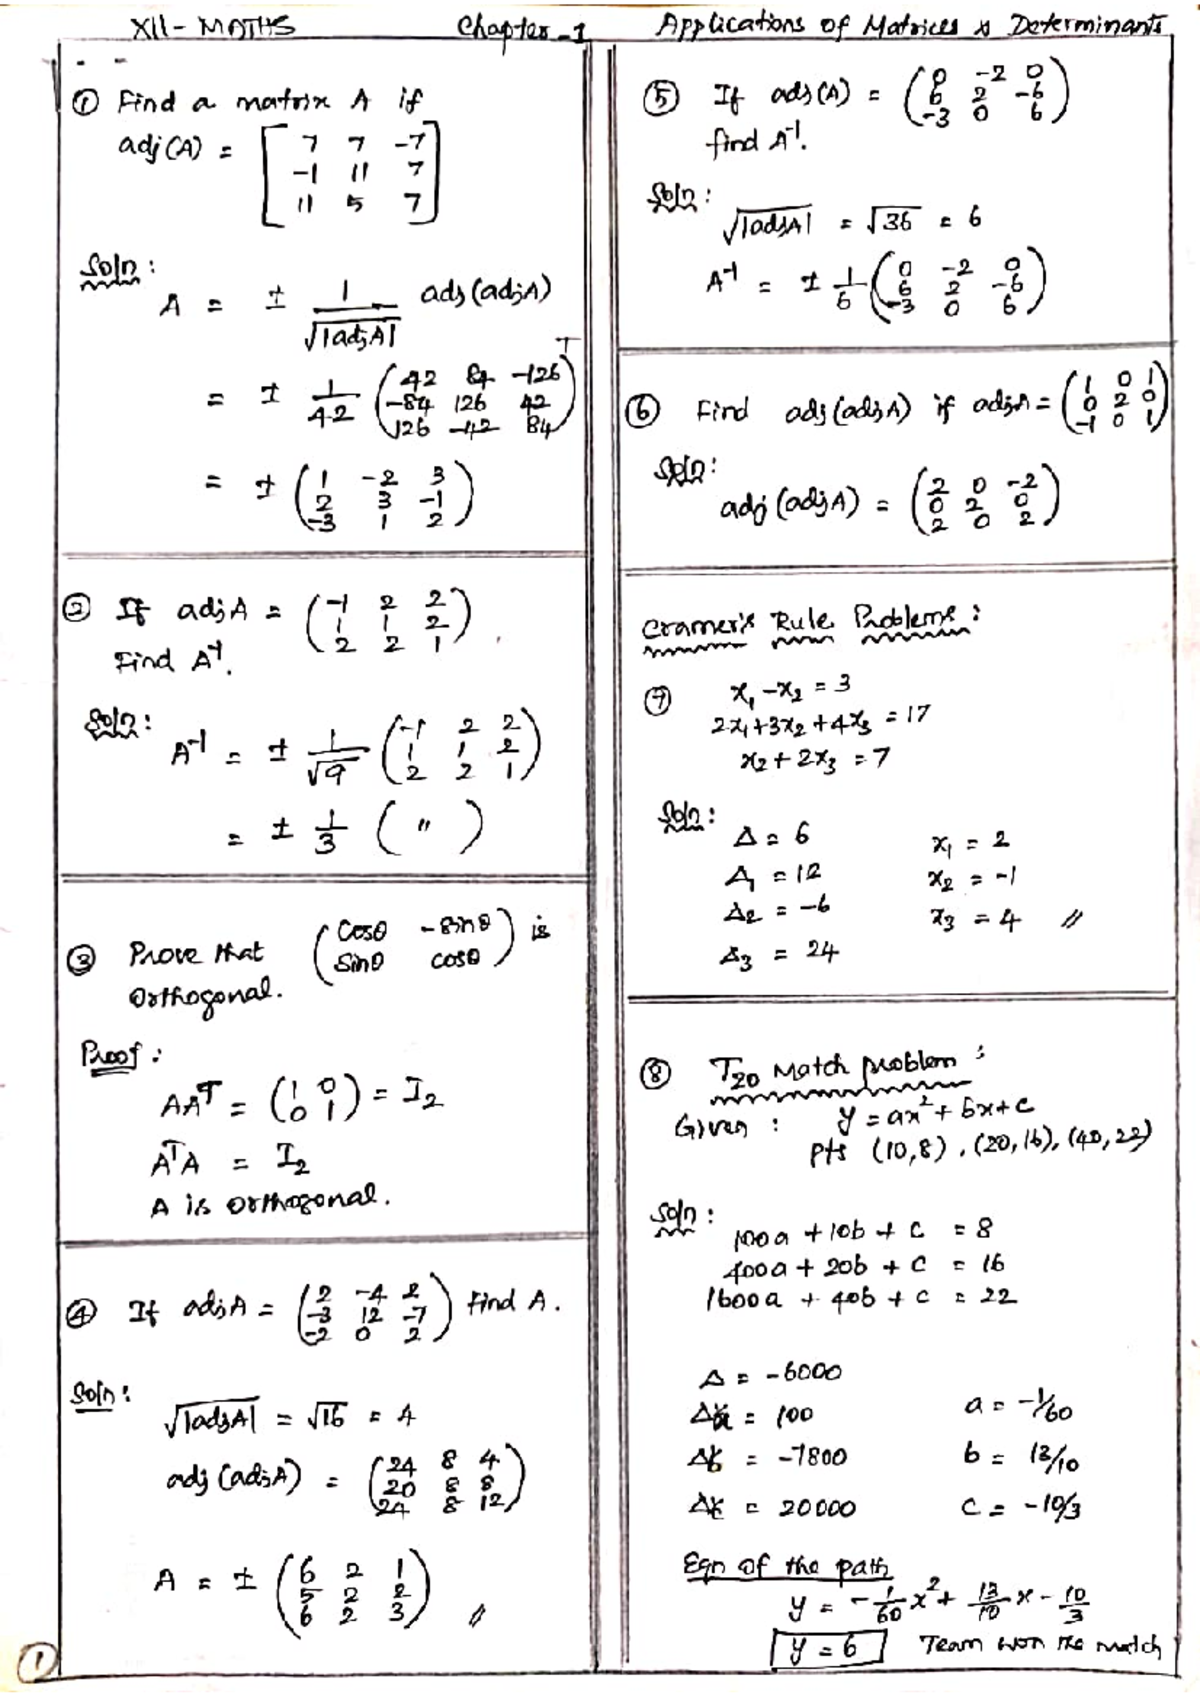 XII - MATHS Chapter - 1 Applications of Matrices & Determinants
① Find a matrix A if
adj(A) = [ 7 7 -7
-1 11 7
11 5 7 ]
Soln :
A = ± 1/√|adjA| adj(adjA)
= ± 1/42 ( 42 84 -126
-84 126 42
126 -42 84 )ᵀ
= ± ( 1 -2 3
2 3 -1
-3 1 2 )
② If adjA = ( -1 2 2
1 1 2
2 2 1 )
Find A⁻¹.
Soln :
A⁻¹ = ± 1/√9 ( -1 2 2
1 1 2
2 2 1 )
= ± 1/3 ( " )
③ Prove that ( cosθ -sinθ
sinθ cosθ ) is
Orthogonal.
Proof :
AAᵀ = ( 1 0
0 1 ) = I₂
AᵀA = I₂
A is orthogonal.
④ If adjA = ( 2 -4 2
-3 12 -7
-2 0 2 ) find A.
Soln :
√|adjA| = √16 = 4
adj(adjA) = ( 24 8 4
20 8 8
24 8 12 )
A = ± ( 6 2 1
5 2 2
6 2 3 ) //
1
⑤ If adj(A) = ( 0 -2 0
6 2 -6
-3 0 6 )
find A⁻¹.
Soln :
√|adjA| = √36 = 6
A⁻¹ = ± 1/6 ( 0 -2 0
6 2 -6
-3 0 6 )
⑥ Find adj(adjA) if adjA = ( 1 0 1
0 2 0
-1 0 1 )
Soln :
adj(adjA) = ( 2 0 -2
0 2 0
2 0 2 )
Cramer's Rule Problems :
⑦ x₁ - x₂ = 3
2x₁ + 3x₂ + 4x₃ = 17
x₂ + 2x₃ = 7
Soln :
Δ = 6 x₁ = 2
Δ₁ = 12 x₂ = -1
Δ₂ = -6 x₃ = 4 //
Δ₃ = 24
⑧ T20 Match problem :
Given : y = ax² + bx + c
pts (10,8), (20,16), (40,22)
Soln :
100a + 10b + c = 8
400a + 20b + c = 16
1600a + 40b + c = 22
Δ = -6000
Δa = 100 a = -1/60
Δb = -7800 b = 13/10
Δc = 20000 c = -10/3
Eqn of the path
y = -1/60 x² + 13/10 x - 10/3
y = 6 Team won the match